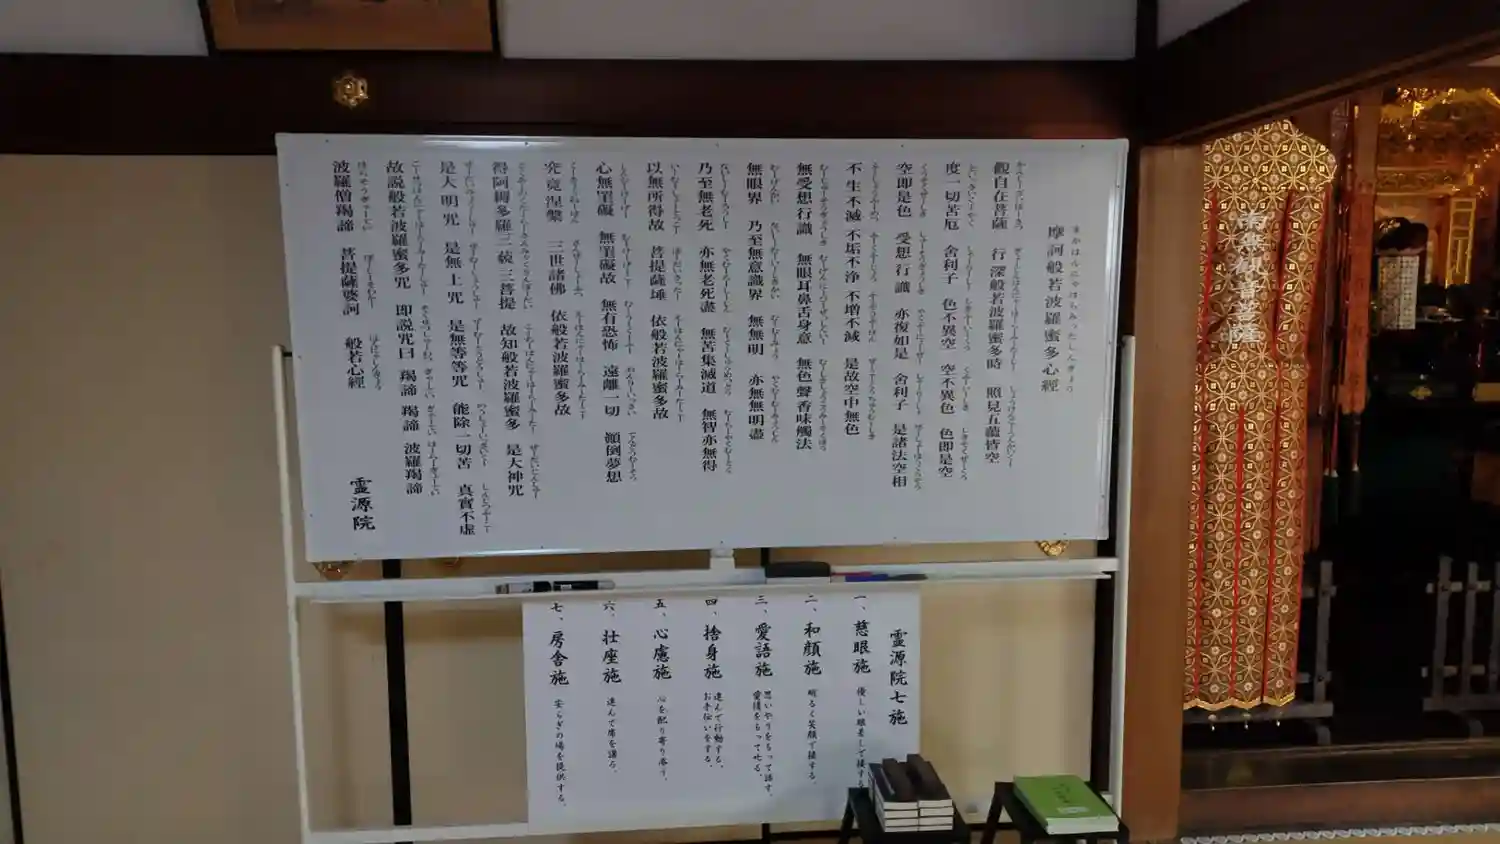 摩訶般若波羅蜜多心經
まかはんにゃはらみったしんぎょう
觀自在菩薩 行 深般若波羅蜜多時 照見五蘊皆空
度一切苦厄 舍利子 色不異空 空不異色 色即是空
空即是色 受想行識 亦復如是 舍利子 是諸法空相
不生不滅 不垢不浄 不增不減 是故空中無色
無受想行識 無眼耳鼻舌身意 無色聲香味觸法
無眼界 乃至無意識界 無無明 亦無無明盡
乃至無老死 亦無老死盡 無苦集滅道 無智亦無得
以無所得故 菩提薩埵 依般若波羅蜜多故
心無罣礙 無罣礙故 無有恐怖 遠離一切 顚倒夢想
究竟涅槃 三世諸佛 依般若波羅蜜多故
得阿耨多羅三藐三菩提 故知般若波羅蜜多 是大神咒
是大明咒 是無上咒 是無等等咒 能除一切苦 真實不虛
故説般若波羅蜜多咒 即説咒曰 羯諦 羯諦 波羅羯諦
波羅僧羯諦 菩提薩婆訶 般若心經
霊源院
南無観音菩薩
霊源院七施
一、慈眼施 優しい眼差しで接する
二、和顔施 明るく笑顔で接する。
三、愛語施 思いやりをもって話す。
愛情をもって叱る。
四、捨身施 進んで行動する。
お手伝いをする。
五、心慮施 心を配り寄り添う。
六、壮座施 進んで席を譲る。
七、房舎施 安らぎの場を提供する。